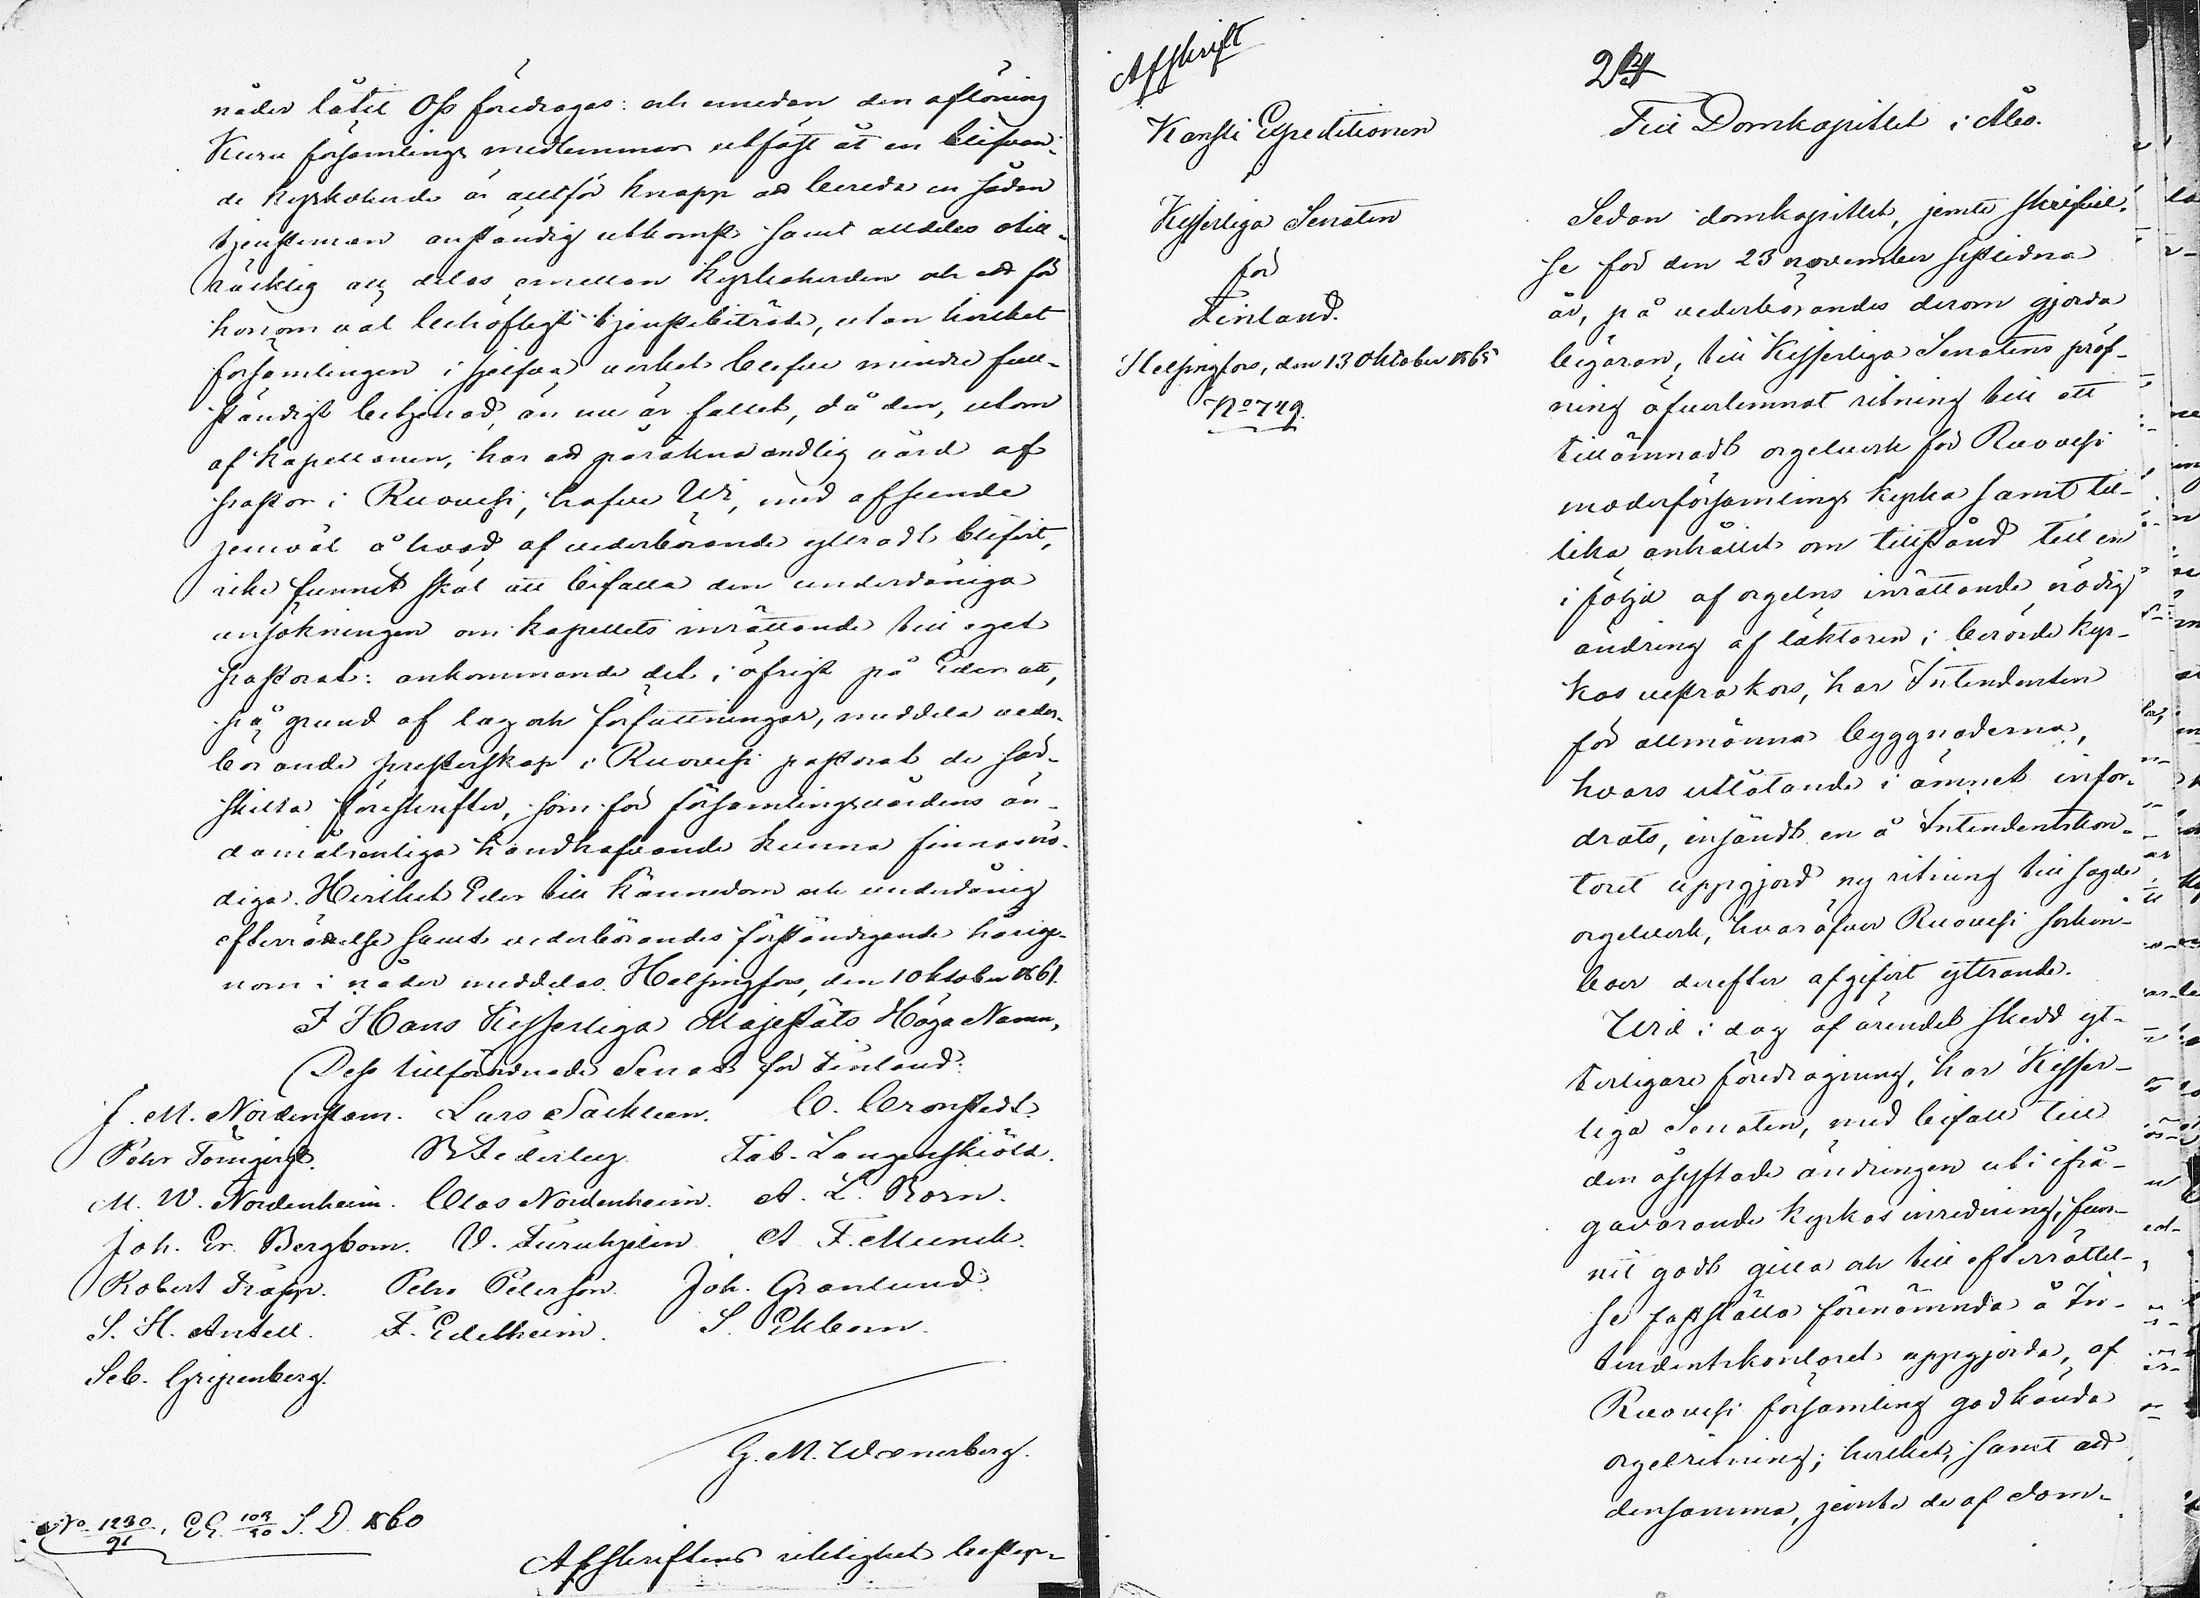 nåder låtit Oss föredragas: och emedan den aflöning
Kuru församlings medlemmar utfäst åt en blifvan-
de kyrkoherde är alltför knapp att bereda en sådan
tjensteman anständig utkomst samt alldeles otill-
räcklig att delas emellan kyrkoherden och ett för
honom väl behöfligt tjenstebiträde, utan hvilket
församlingen i sjelfva verket blefve mindre full-
ständigt betjenad, än nu är fallet, då den, utom
af kapellanen, har att påräkna andlig vård af
pastor i Ruovesi, hafve Wi, med afseende
jemväl å hvad af vederbörande yttradt blifvit,
icke funnit skäl att bifalla den underdåniga
ansökningen om kapellets inrättande till eget
pastorat: ankommande det i öfrigt på Eder att,
på grund af lag och författningar, meddela veder-
börande presterskap i Ruovesi pastorat de sär-
skilta föreskrifter, som för församlingsvårdens än-
damålsenliga handhafvande kunna finnas nö-
diga. Hvilket Eder till kännedom och underdånig
efterrättelse samt vederbörandes förständigande härige-
nom i nåder meddelas. Helsingfors, den 10 ktober 1861.
I Hans Kejserliga Majestäts Höga Namn,
Dess tillförordnade Senat för Finland:
J. M. Nordenstam. Lars Sackleen. C. Cronstedt.
Pehr Törnqvist. R Federley. Fab. Langenskiöld.
M. W. Nordenheim. Clas Nordenheim. A. L. Born.
Joh. Er. Bergbom. V. Furuhjelm. A. F. Munck.
Robert Trapp. Pehr Peterson. Joh. Granlund.
S. H. Antell. F. Edelheim. S. Ekbom.
Seb. Gripenberg.
G. M. Wænerberg.
No 1230/91, EE. 103/20 S. D. 1860
Afskriftens riktighet bestyr-
Afskrift
24
Kansli Expeditionen
Kejserliga Senaten
för
Finland.
Helsingfors, den 13 Oktober 1865
No 749.
Till Domkapitlet i Åbo.
Sedan domkapitlet, jemte skrifvel-
se för den 23 november sistlidna
år, på vederbörandes derom gjorda
begäran, till Kejserliga Senatens pröf-
ning öfverlemnat ritning till ett
tillämnadt orgelverk för Ruovesi
moderförsamlings kyrka samt til-
lika anhållit om tillstånd till en
i följd af orgelns inrättande nödig
ändring af läktaren i berörde kyr-
kas vestra kors, har Intendenten
för allmänna byggnaderna,
hvars utlåtande i ämnet infor-
drats, insändt en å Intendentskon-
toret uppgjord ny ritning till sagde
orgelverk, hvaröfver Ruovesi sockne-
boer derefter afgifvit yttrande.
Wid i dag af ärendet skedd yt-
terligare föredragning, har Kejser-
liga Senaten, med bifall till
den åsyftade ändringen uti ifrå-
gavarande kyrkas inredning, fun-
nit godt gilla och till efterrättel-
se fastställa förenämnda å In-
tendentskontoret uppgjorda, af
Ruovesi församling godkända
orgelritning; hvilket, samt att
densamma, jemte de af dom-